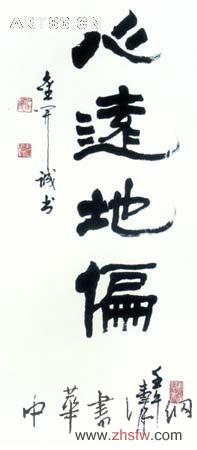 心遠地偏
壬午
金开诚书
中華書法网
www.zhsfw.com